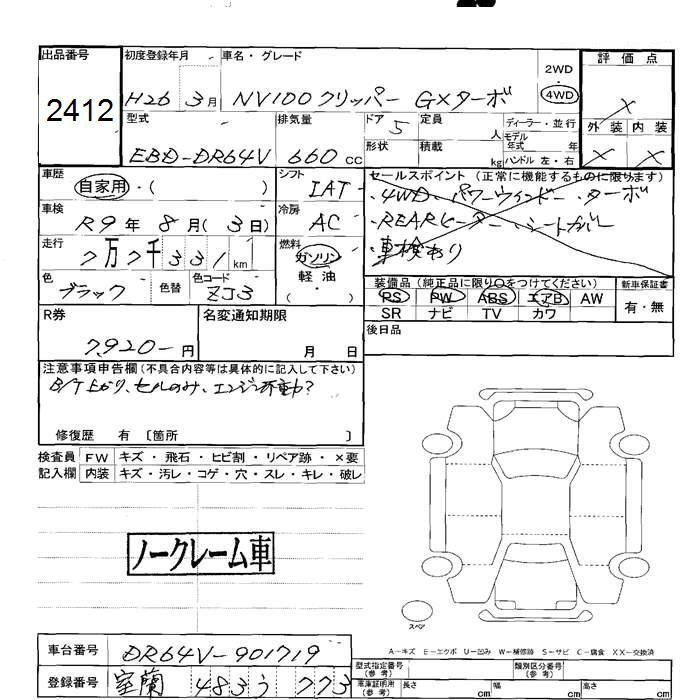 出品番号 初度登録年月 車名・グレード 評価点
2412 H26 3月 NV100クリッパー GXターボ 2WD 4WD ×
型式 排気量 ドア 5 定員 人 ディーラー・並行 外装 内装
EBD-DR64V 660cc 形状 積載 kg モデル年式 年 ハンドル 左・右 × ×
車歴 シフト セールスポイント(正常に機能するものに限ります)
自家用・( ) IAT ・4WD・パワーウィンドー・ターボ
車検 R9年 8月(3日) 冷房 AC ・REARヒーター・シートカバー
走行 7万7千331km 燃料 ガソリン ・車検あり
色 ブラック 色替 色コード ZJ3 軽油 ・( )
装備品(純正品に限り○をつけてください) 新車保証書
PS PW ABS エアB AW 有・無
SR ナビ TV カワ
R券 名変通知期限 後日品
7,920-円 月 日
注意事項申告欄(不具合内容等は具体的に記入して下さい)
B/T上がり、セルのみ、エンジン不動?
修復歴 有 〔箇所 〕
検査員 FW キズ・飛石・ヒビ割・リペア跡・×要
記入欄 内装 キズ・汚レ・コゲ・穴・スレ・キレ・破レ
ノークレーム車
スペア
A−キズ E−エクボ U−凹み W−補修跡 S−サビ C−腐食 XX−交換済
車台番号 DR64V-901719
型式指定番号(参考) 類別区分番号(参考)
登録番号 室蘭 483 う 773
車庫証明用(参考) 長さ cm 幅 cm 高さ cm